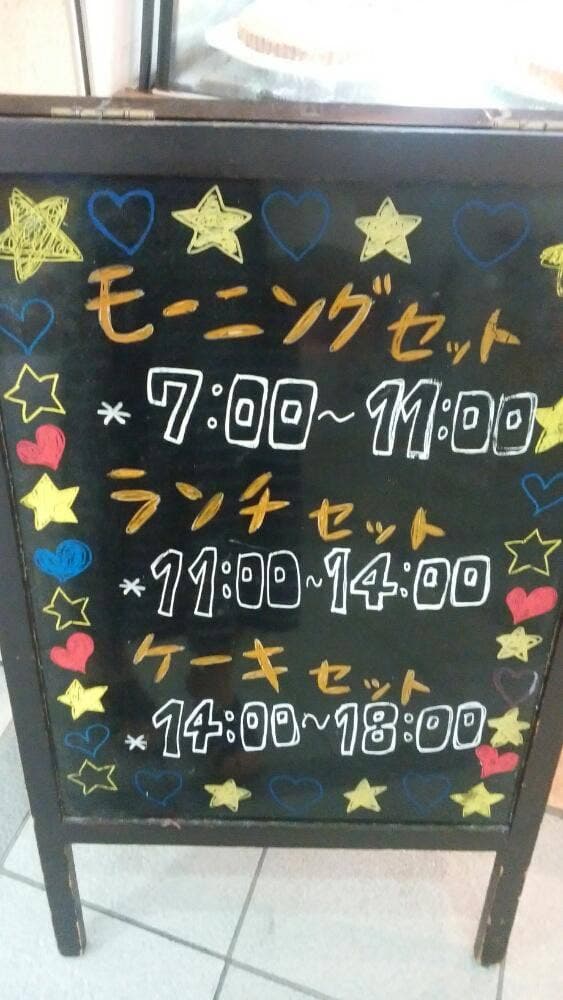 モーニングセット
*7:00~11:00
ランチセット
*11:00~14:00
ケーキセット
*14:00~18:00